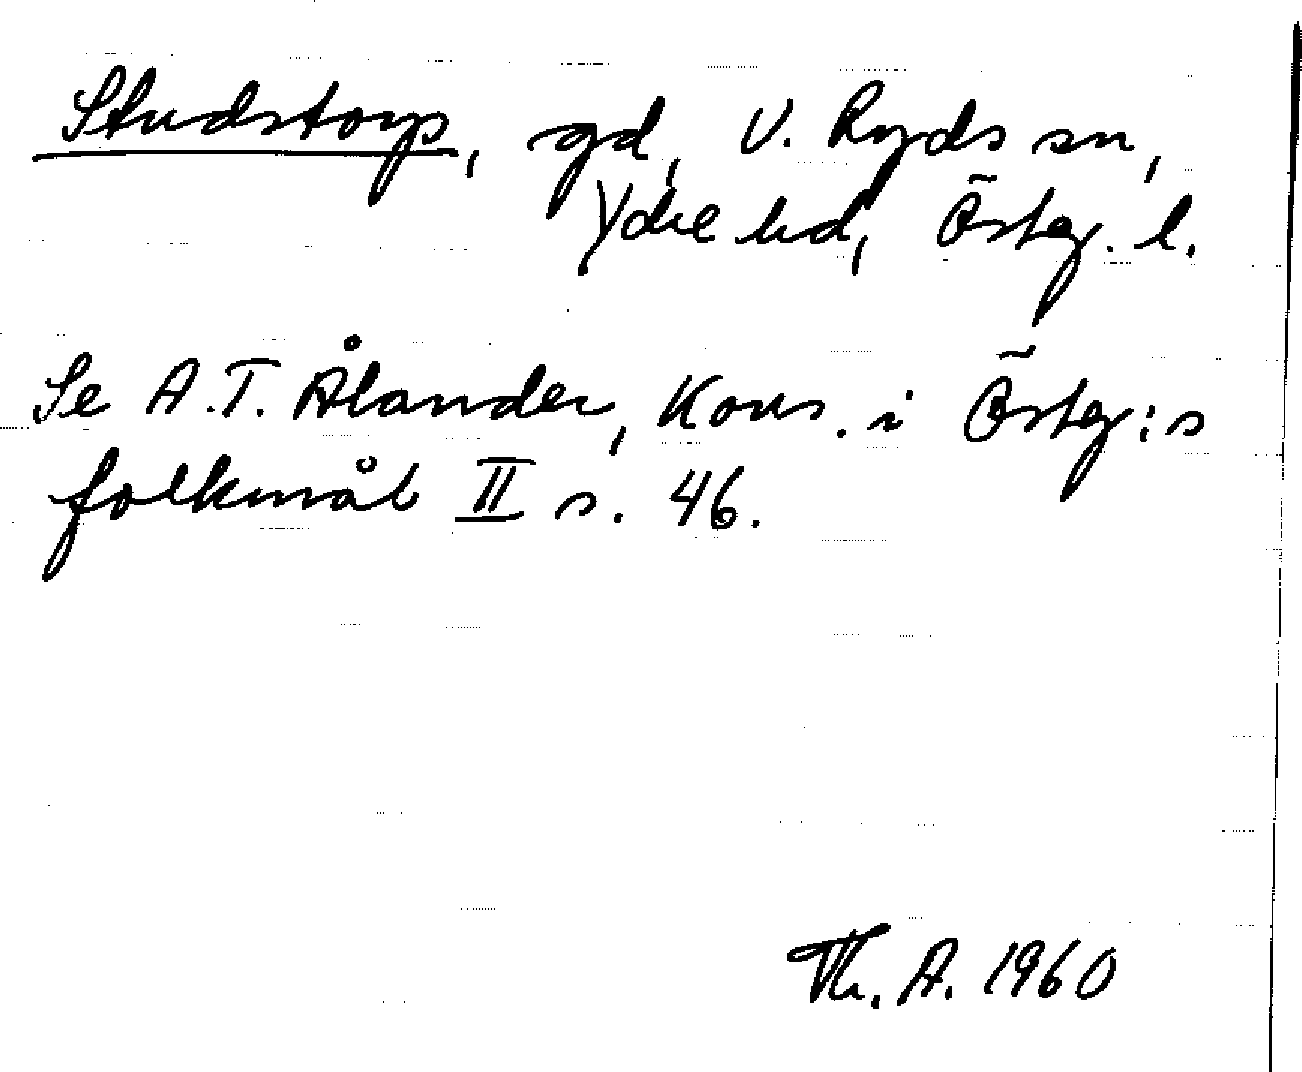 Studstorp, gd, V. Ryds sn,
Ydre hd, Östg. l.
Se A.T. Ålander, Kons. i Östg:s
folkmål II s. 46.
Th. A. 1960